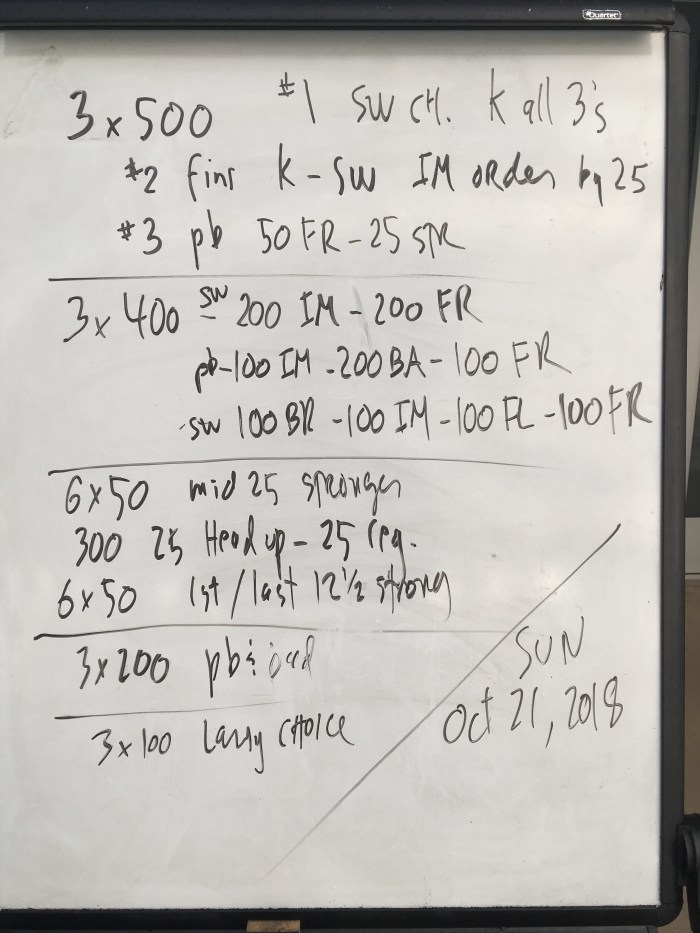 Quartet
3x500 #1 SW CH. K all 3's
#2 fins K-SW IM order by 25
#3 pb 50 FR-25 STR
3x400 SW 200 IM-200 FR
pb-100 IM-200 BA-100 FR
-SW 100 BR-100 IM-100 FL-100 FR
6x50 mid 25 stronger
300 25 Head up-25 reg.
6x50 1st/last 12½ strong
3x200 pb &
3x100 Larry CHOICE
SUN
Oct 21, 2018